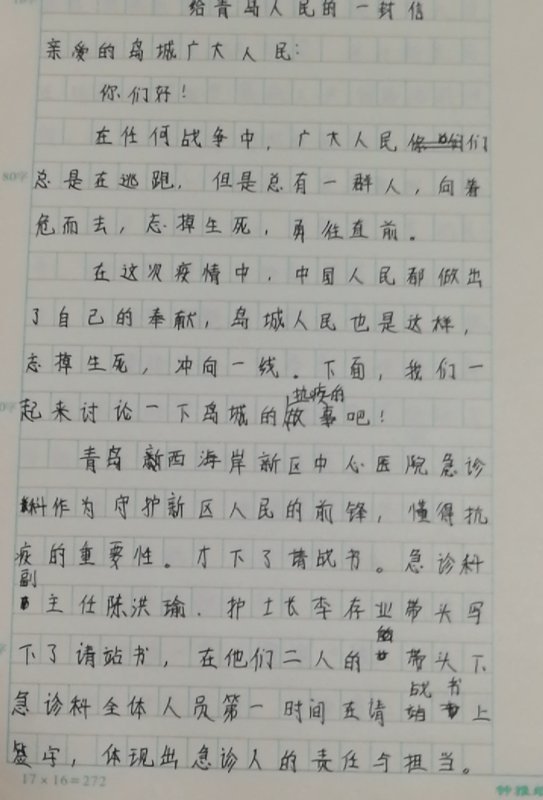 给青岛人民的一封信
亲爱的岛城广大人民：
你们好！
在任何战争中，广大人民们
80字
总是在逃跑，但是总有一群人，向着
危而去，忘掉生死，勇往直前。
在这次疫情中，中国人民都做出
了自己的奉献，岛城人民也是这样，
忘掉生死，冲向一线。下面，我们一
抗疫的
起来讨论一下岛城的故事吧！
青岛新西海岸新区中心医院急诊
科作为守护新区人民的前锋，懂得抗
疫的重要性。才下了请战书。急诊科
副
主任陈洪瑜、护士长李存业带头写
下了请站书，在他们二人的带头下
战书
急诊科全体人员第一时间在请上
签字，体现出急诊人的责任与担当。
17×16=272